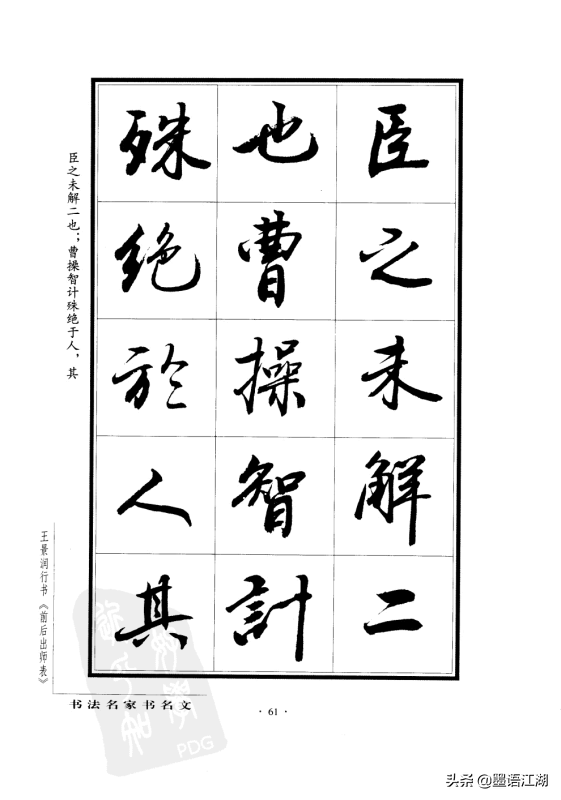 臣之未解二
也曹操智計
殊绝於人其
臣之未解二也；曹操智计殊绝于人，其
王景润行书《前后出师表》
书法名家书名文
·61·
PDG
头条@墨语江湖